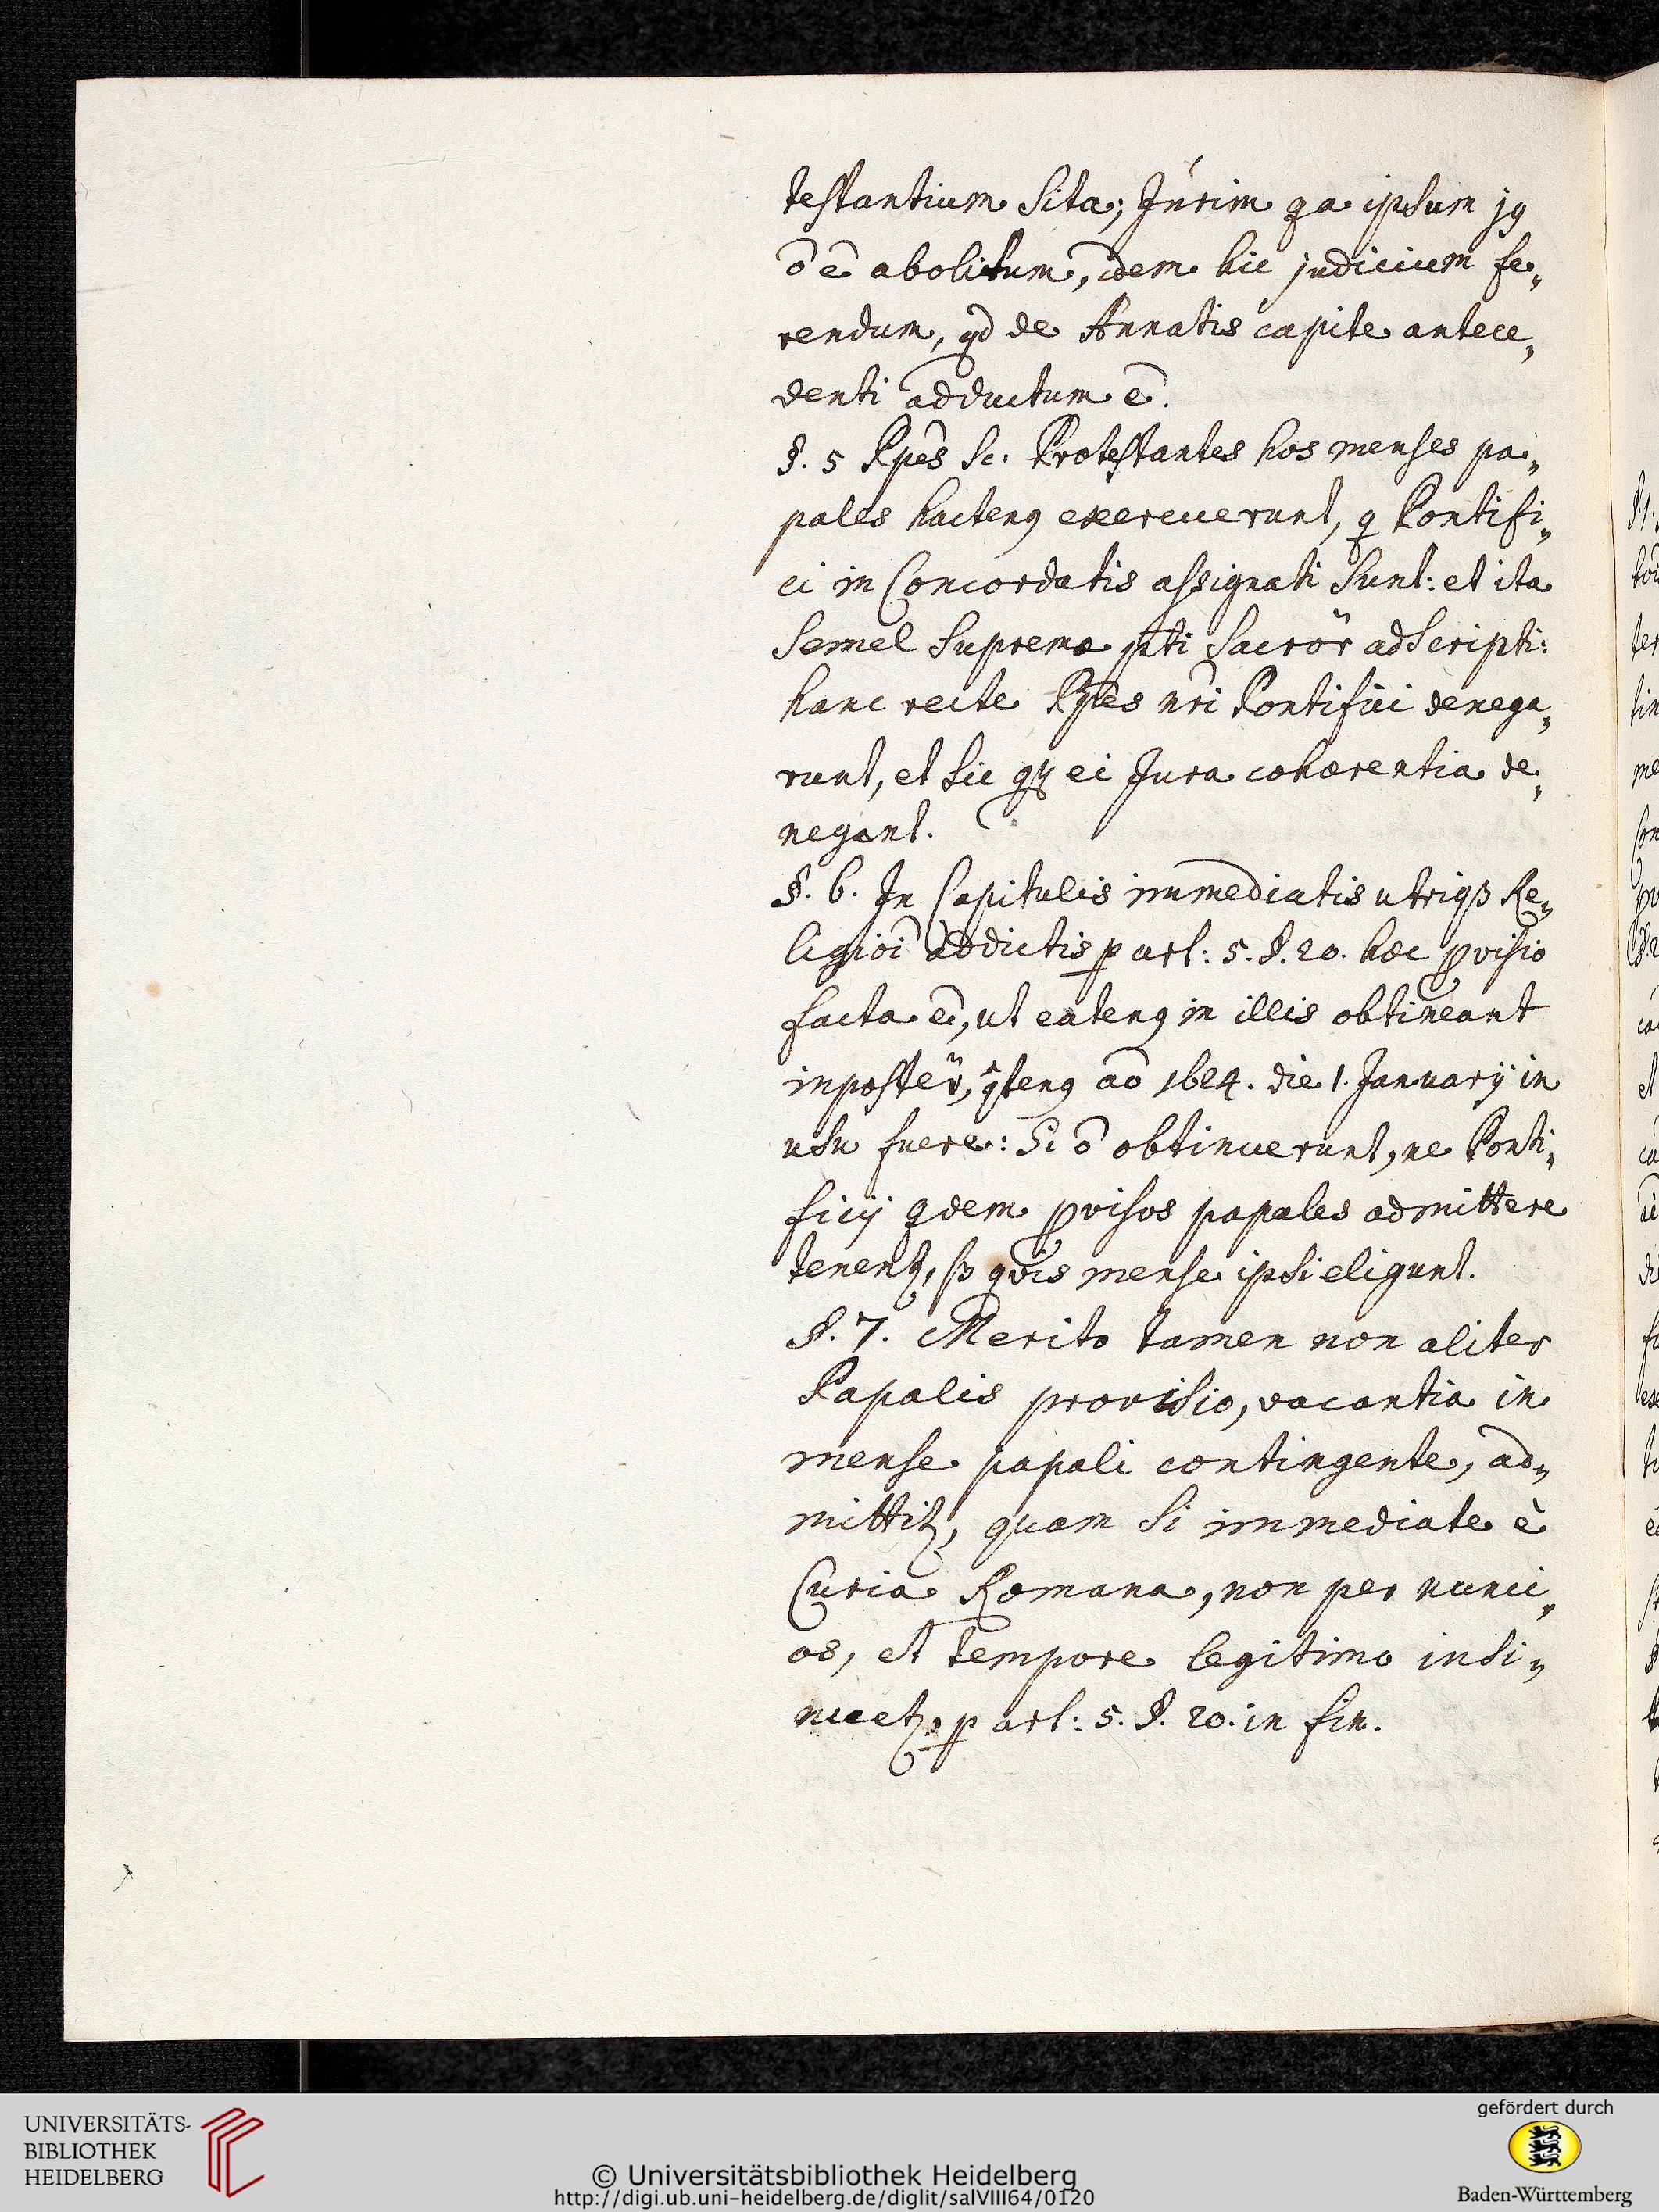 testantium sita; Iurim qa ipsum jꝯ
õ ẽ abolitum, idem hic judicium fe„
rendum, qd de Annatis capite antece„
denti adductum ẽ.
§. 5 Ppẽs sc. Protestantes hos menses pa„
pales hactenꝯ exercuerunt, q Pontifi„
ci in Concordatis assignati sunt: et ita
semel supremæ ptti sacror̃ adscripti:
hanc recte Ppes nr̃i Pontifici denega„
runt, et sic qꝫ ei Jura cohærentia de„
negant.
§. 6. In Capitulis immediatis utriqꝫ Re„
ligiõi addictis ꝑ art: 5. §. 20. hæc ꝓvisio
facta ẽ, ut eatenꝯ in illis obtineant
inposter̃, qtenꝯ aõ 1624. die 1. Januarÿ in
usu fuere: Si õ obtinuerunt, ne Ponti„
ficÿ qdem ꝓvisos papales admittere
tenentꝫ, sꝫ qvis mense ipsi eligunt.
§. 7. Merito tamen non aliter
Papalis provisio, vacantia in
mense papali contingente, ad„
mittitꝫ, quam si immediate è
Curia Romana, non per nunci„
os, et tempore legitimo insi„
nuetꝫ, ꝑ art: 5. §. 20. in fin.
UNIVERSITÄTS-
BIBLIOTHEK
HEIDELBERG
© Universitätsbibliothek Heidelberg
http://digi.ub.uni-heidelberg.de/diglit/salVIII64/0120
gefördert durch
Baden-Württemberg